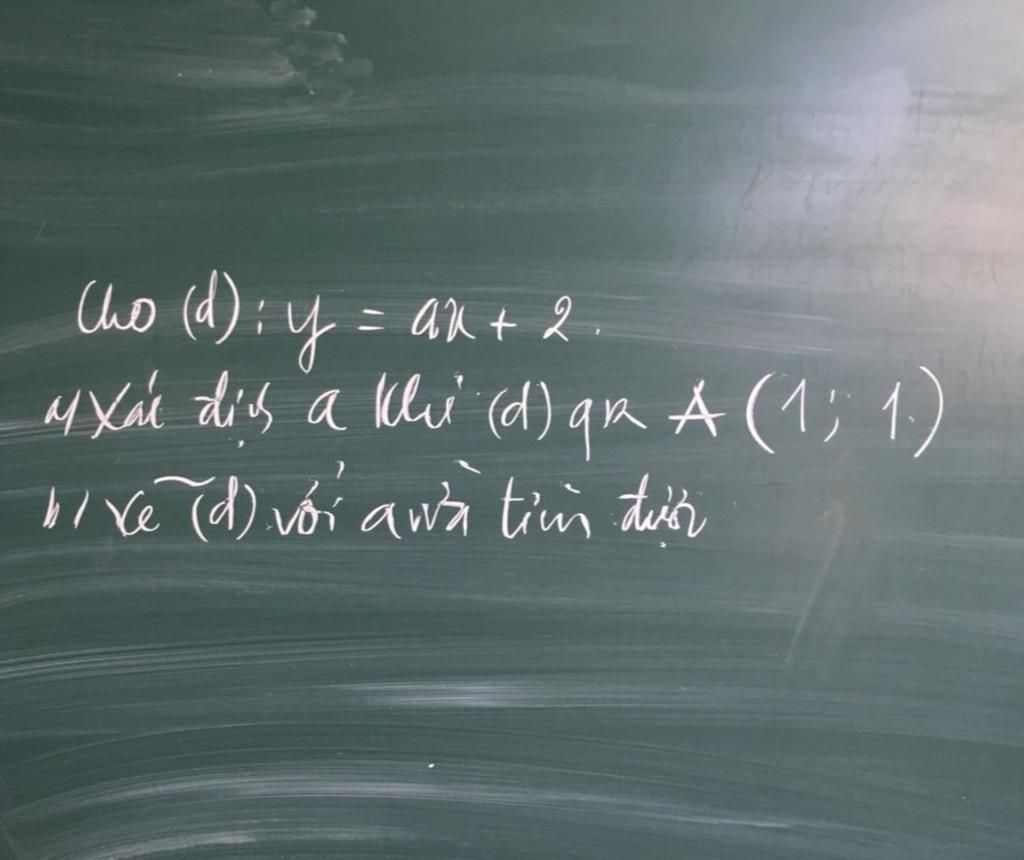 Cho (d): y = ax + 2.
a) Xác định a khi (d) qua A (1; 1)
b) Vẽ (d) với a vừa tìm được